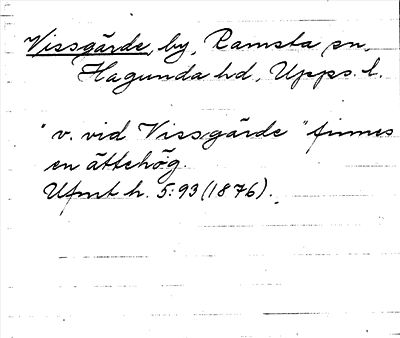 Vissgärde, by, Ramsta sn,
Hagunda hd, Upps. l.
"v. vid Vissgärde" finnes
en ättehög.
Ufmt h. 5:93 (1876).